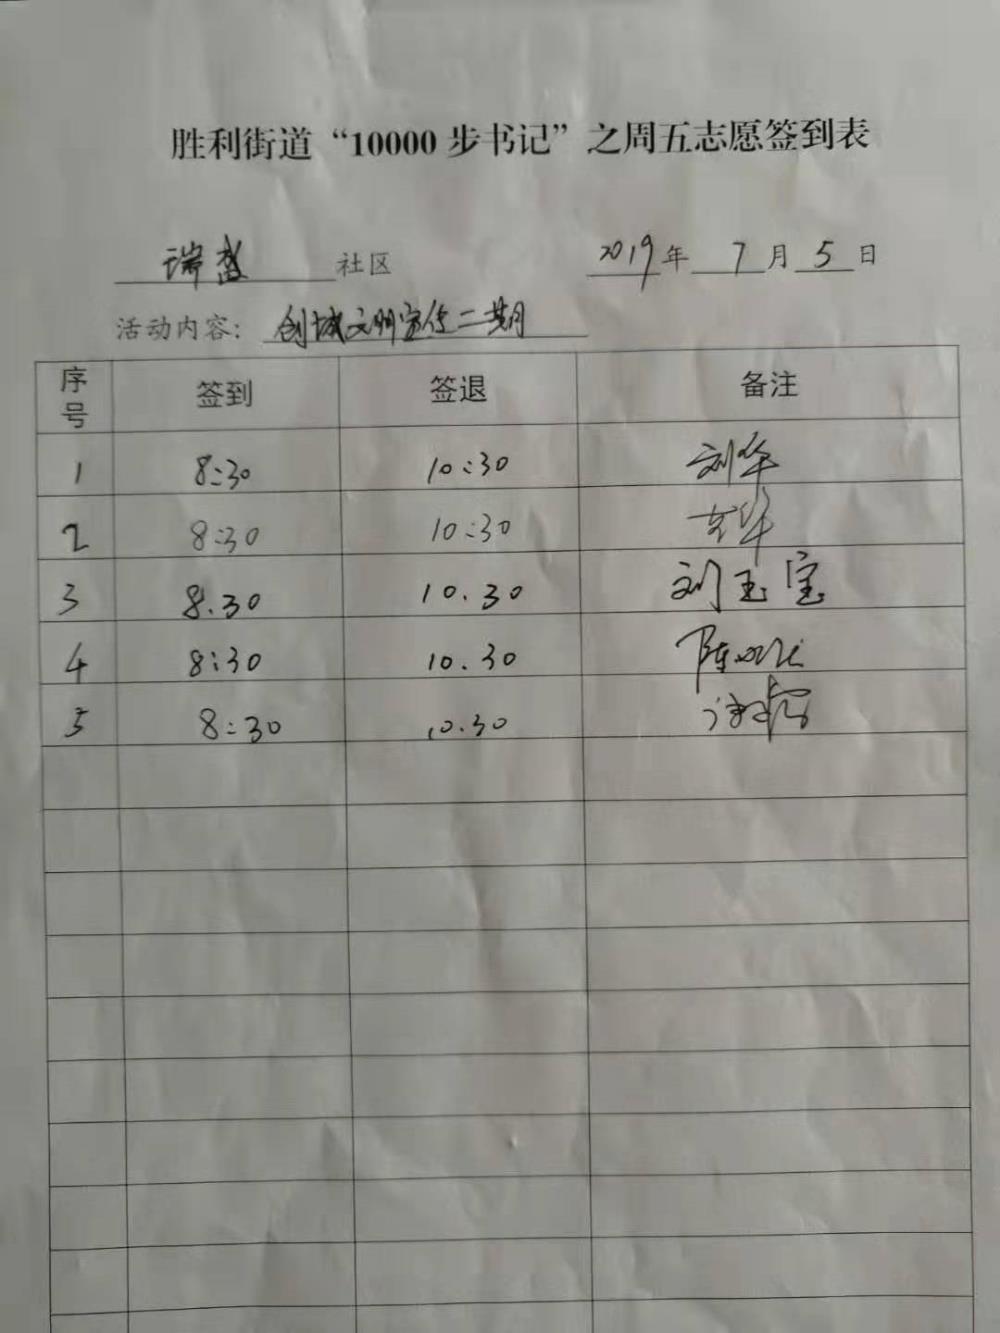 胜利街道“10000步书记”之周五志愿签到表
瑞盛 社区 2019年 7月 5日
活动内容: 创城文明宣传二期
序号 签到 签退 备注
1 8:30 10:30 刘华
2 8:30 10:30
3 8.30 10.30 刘玉宝
4 8:30 10.30 陈
5 8:30 10.30